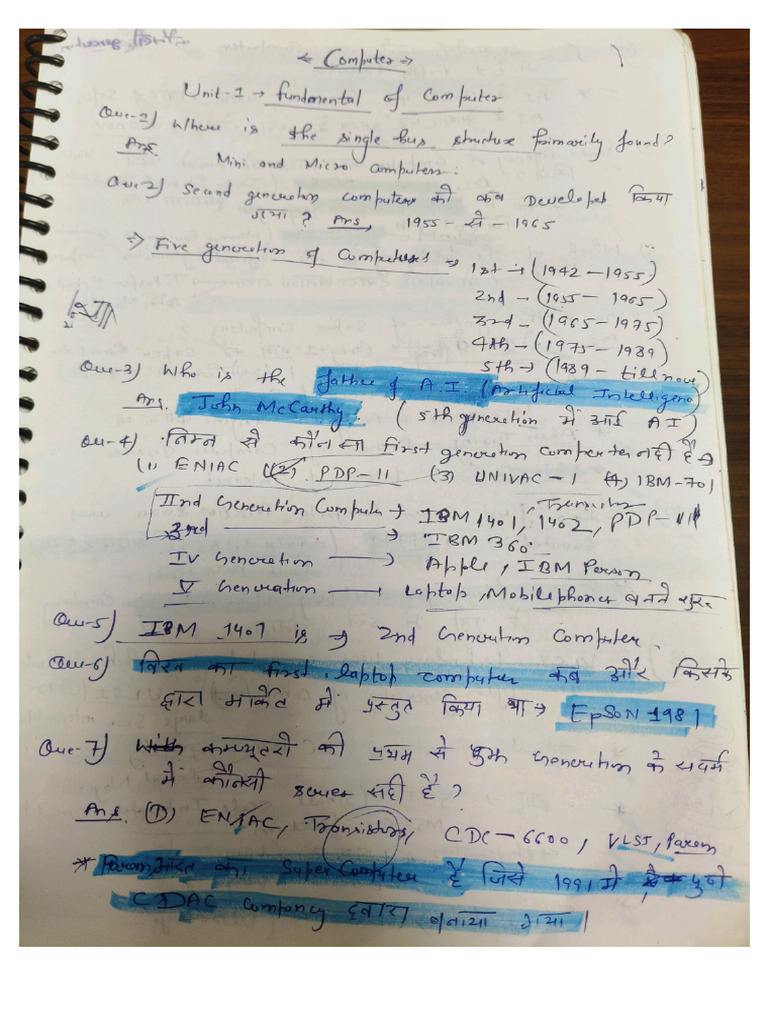 ← Computer →
Unit-1 → fundmental of Computer
Que-1) Where is the single bus structure primarily found?
Ans. Mini and Micro Computers.
Que-2) Second generation computers को कब Developed किया
गया? Ans, 1955 - से - 1965
⇒ Five generation of Computers ⇒ 1st → (1942 - 1955)
2nd - (1955 - 1965)
3rd - (1965 - 1975)
4th → (1975 - 1989)
5th → (1989 - till now)
Que-3) Who is the father of A.I. (Artificial Intelligence)
Ans. John McCarthy. (5th generation में आई AI)
Qu-4) निम्न से कौन सा first generation computer नही है →
(1) ENIAC (2) PDP-11 (3) UNIVAC-1 (4) IBM-701
IInd Generation Computer → IBM 1401, 1402, PDP-
3rd → IBM 360
IV Generation → Apple, IBM Person
V Generation → Laptop, Mobilephones बनने शुरू
Que-5) IBM 1401 is → 2nd Generation Computer.
Que-6) विश्व का first laptop computer कब और किसके
द्वारा मार्केट में प्रस्तुत किया था → EpSoN 1981
Que-7) कम्प्यूटरो की प्रथम से Generation के सदर्भ
में कौनसी series सही है?
Ans. (1) ENIAC, Transistors, CDC-6600, VLSI, Param
* Param भारत का Super Computer है जिसे 1991 मे पुणे
CDAC Company द्वारा बनाया गया।